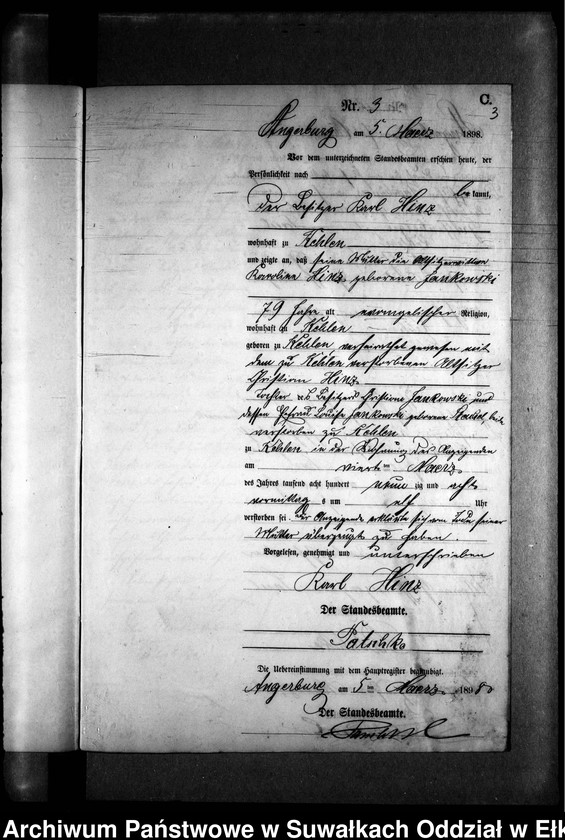 C.
Nr. 3
3
Angerburg am 5. Maerz 1898.
Vor dem unterzeichneten Standesbeamten erschien heute, der
Persönlichkeit nach
be kannt,
der Besitzer Karl Hinz
wohnhaft zu Kehlen
und zeigte an, daß seine Mutter die Altsitzerwittwe
Karoline Hinz, geborene Jankowski
79 Jahre alt evangelischer Religion,
wohnhaft zu Kehlen
geboren zu Kehlen verheirathet gewesen mit
dem zu Kehlen verstorbenen Altsitzer
Christian Hinz
Tochter des Besitzers Christian Jankowski und
dessen Ehefrau Louise Jankowski geborene beide
verstorben zu Kehlen
zu Kehlen in der Wohnung des Anzeigenden
am vierten Maerz
des Jahres tausend acht hundert neun zig und acht
vormittag s um elf Uhr
verstorben sei. Der Anzeigende erklärte sich vom Tode seiner
Mutter überzeugt zu haben
Vorgelesen, genehmigt und unterschrieben
Karl Hinz
Der Standesbeamte.
Die Uebereinstimmung mit dem Hauptregister beglaubigt.
Angerburg am 5ten Maerz 1898
Der Standesbeamte.
Archiwum Państwowe w Suwałkach Oddział w Ełk